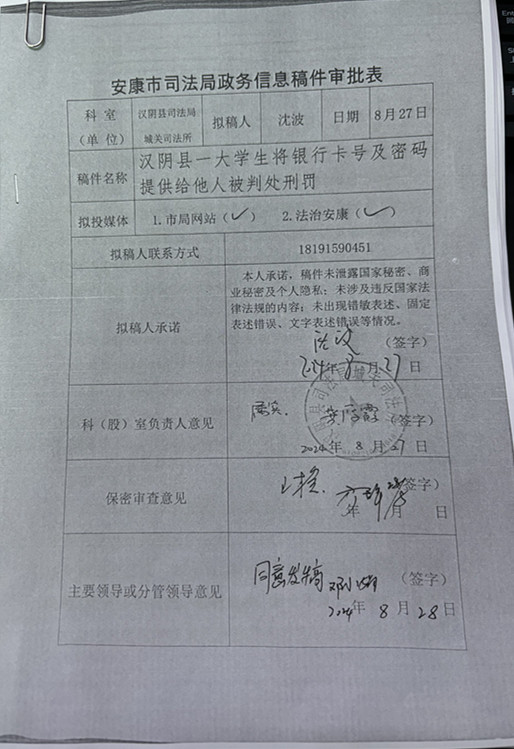 安康市司法局政务信息稿件审批表
科室
（单位）
汉阴县司法局
城关司法所
拟稿人
沈波
日期
8月27日
稿件名称
汉阴县一大学生将银行卡号及密码
提供给他人被判处刑罚
拟投媒体
1.市局网站（✓） 2.法治安康（✓）
拟稿人联系方式
18191590451
拟稿人承诺
本人承诺，稿件未泄露国家秘密、商
业秘密及个人隐私；未涉及违反国家法
律法规的内容；未出现错敏表述、固定
表述错误、文字表述错误等情况。
沈波（签字）
2024年8月27日
科（股）室负责人意见
属实.
（签字）
2024年8月27日
保密审查意见
（签字）
年 月 日
主要领导或分管领导意见
同意发稿
（签字）
2024年8月28日